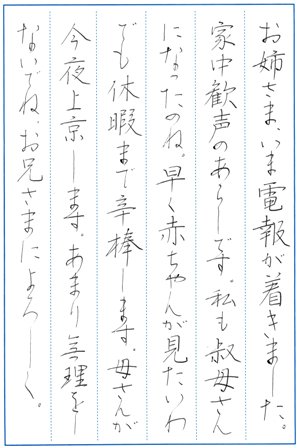 お姉さま、いま電報が着きました。
家中歓声のあらしです。私も叔母さん
になったのね。早く赤ちゃんが見たいわ
でも休暇まで辛棒します。母さんが
今夜上京します。あまり無理をし
ないでね、お兄さまによろしく。